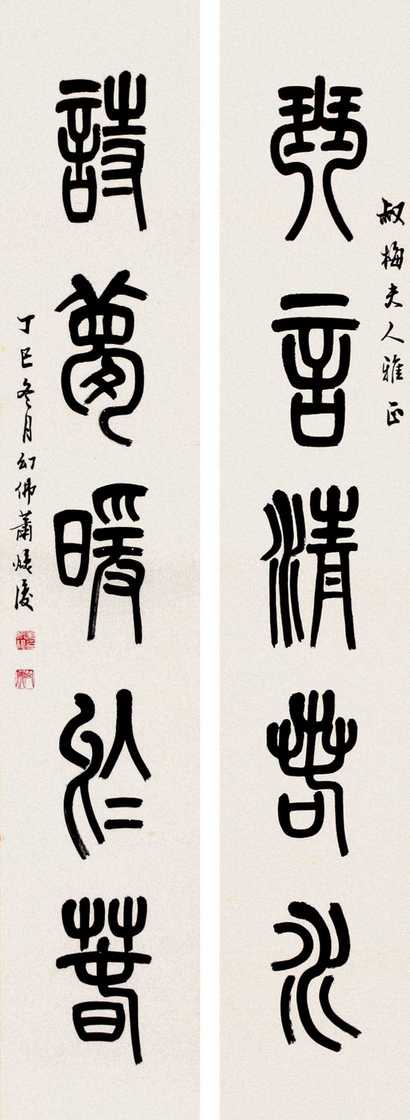 叔梅夫人雅正
琴言清若水
詩夢暖於春
丁巳冬月幻佛蕭